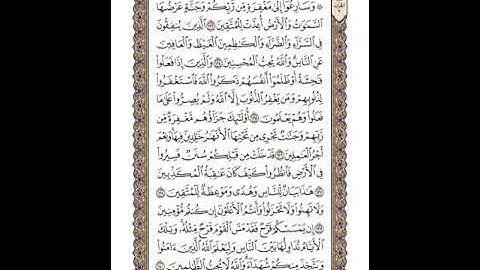 ۞ وَسَارِعُوٓا۟ إِلَىٰ مَغْفِرَةٍ مِّن رَّبِّكُمْ وَجَنَّةٍ عَرْضُهَا
ٱلسَّمَٰوَٰتُ وَٱلْأَرْضُ أُعِدَّتْ لِلْمُتَّقِينَ ١٣٣ ٱلَّذِينَ يُنفِقُونَ
فِى ٱلسَّرَّآءِ وَٱلضَّرَّآءِ وَٱلْكَٰظِمِينَ ٱلْغَيْظَ وَٱلْعَافِينَ
عَنِ ٱلنَّاسِ وَٱللَّهُ يُحِبُّ ٱلْمُحْسِنِينَ ١٣٤ وَٱلَّذِينَ إِذَا فَعَلُوا۟
فَٰحِشَةً أَوْ ظَلَمُوٓا۟ أَنفُسَهُمْ ذَكَرُوا۟ ٱللَّهَ فَٱسْتَغْفَرُوا۟
لِذُنُوبِهِمْ وَمَن يَغْفِرُ ٱلذُّنُوبَ إِلَّا ٱللَّهُ وَلَمْ يُصِرُّوا۟ عَلَىٰ مَا
فَعَلُوا۟ وَهُمْ يَعْلَمُونَ ١٣٥ أُو۟لَٰٓئِكَ جَزَآؤُهُم مَّغْفِرَةٌ مِّن
رَّبِّهِمْ وَجَنَّٰتٌ تَجْرِى مِن تَحْتِهَا ٱلْأَنْهَٰرُ خَٰلِدِينَ فِيهَا وَنِعْمَ
أَجْرُ ٱلْعَٰمِلِينَ ١٣٦ قَدْ خَلَتْ مِن قَبْلِكُمْ سُنَنٌ فَسِيرُوا۟
فِى ٱلْأَرْضِ فَٱنظُرُوا۟ كَيْفَ كَانَ عَٰقِبَةُ ٱلْمُكَذِّبِينَ
١٣٧ هَٰذَا بَيَانٌ لِّلنَّاسِ وَهُدًى وَمَوْعِظَةٌ لِّلْمُتَّقِينَ ١٣٨
وَلَا تَهِنُوا۟ وَلَا تَحْزَنُوا۟ وَأَنتُمُ ٱلْأَعْلَوْنَ إِن كُنتُم مُّؤْمِنِينَ
١٣٩ إِن يَمْسَسْكُمْ قَرْحٌ فَقَدْ مَسَّ ٱلْقَوْمَ قَرْحٌ مِّثْلُهُۥ وَتِلْكَ
ٱلْأَيَّامُ نُدَاوِلُهَا بَيْنَ ٱلنَّاسِ وَلِيَعْلَمَ ٱللَّهُ ٱلَّذِينَ ءَامَنُوا۟
وَيَتَّخِذَ مِنكُمْ شُهَدَآءَ وَٱللَّهُ لَا يُحِبُّ ٱلظَّٰلِمِينَ ١٤٠